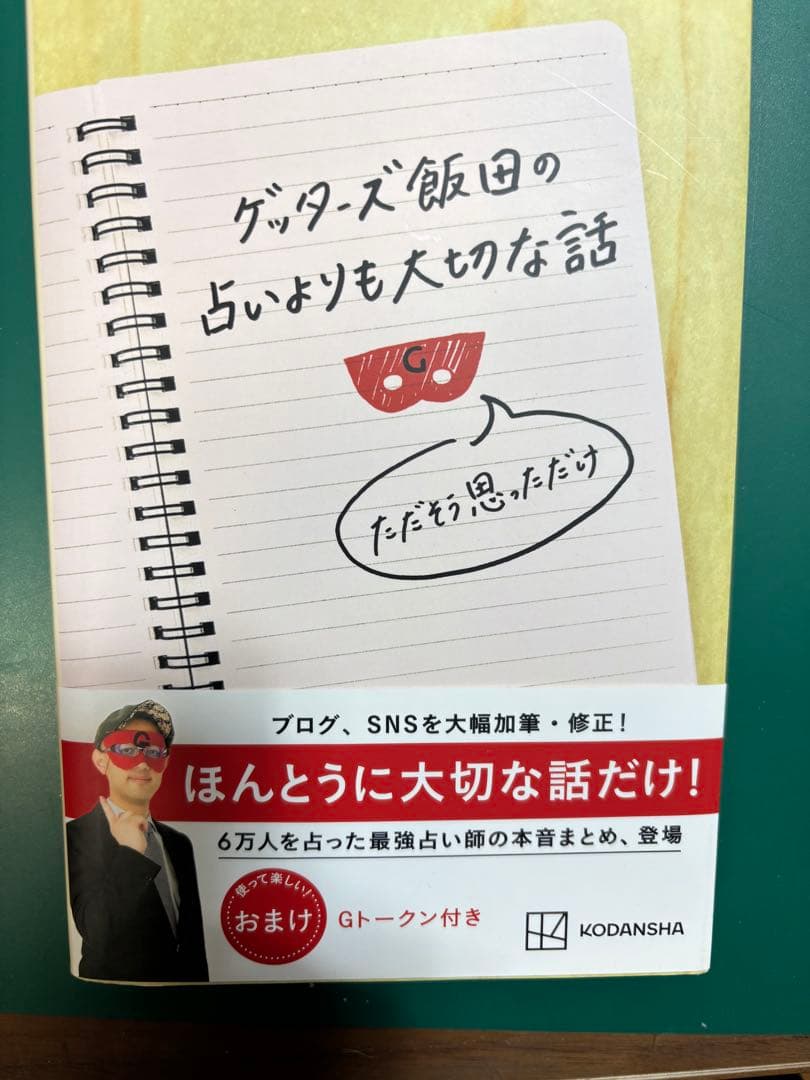 ゲッターズ飯田の
占いよりも大切な話
G
ただそう思っただけ
ブログ、SNSを大幅加筆・修正!
G
ほんとうに大切な話だけ!
6万人を占った最強占い師の本音まとめ、登場
使って楽しい!
おまけ
Gトークン付き
KODANSHA